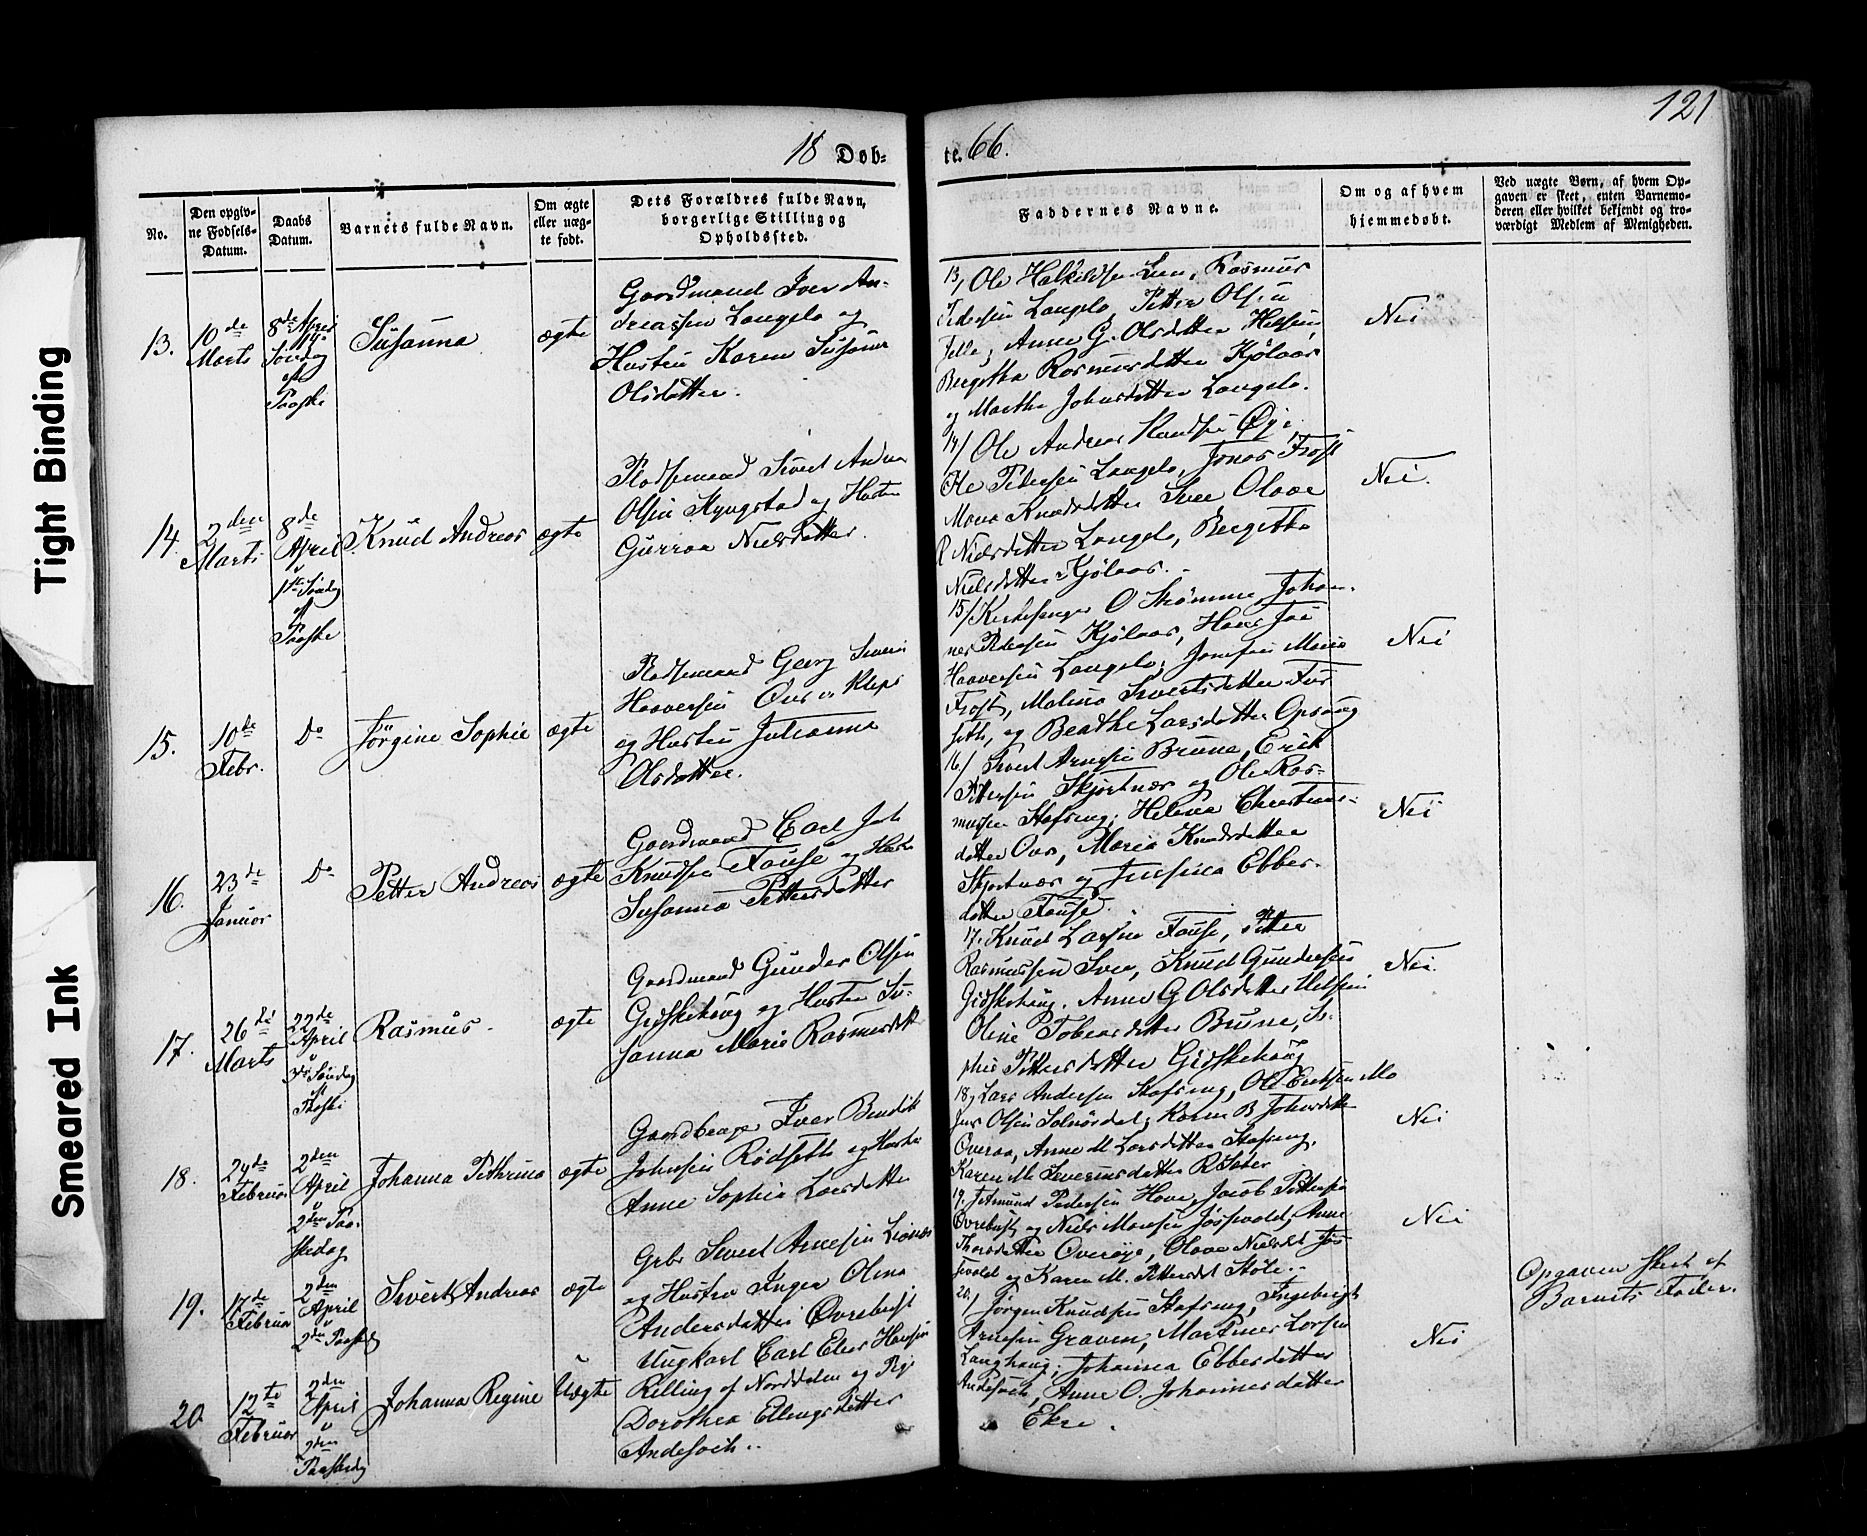 121
18 Døb-
te. 66.
No.
Den opgiv-
ne Fødsels-
Datum.
Daabs
Datum.
Barnets fulde Navn.
Om ægte
eller uæg-
te født.
Dets Forældres fulde Navn,
borgerlige Stilling og
Opholdssted.
Faddernes Navne.
Om og af hvem
hjemmedøbt.
Ved uægte Børn, af hvem Op-
gaven er skeet, enten Barnemo-
deren eller hvilket bekjendt og tro-
værdigt Medlem af Menigheden.
13.
10de
Marts
8de April
1ste
Søndag
eft
Paaske
Susanna
ægte
Gaardmand Iver An-
dreassen Langelo og
Hustru Karen Susanne
Olsdatter.
13, Ole Halkildsen Rasmus
Pedersen Langelo, Petter Olsen
Anne G. Olsdatter Helsem
Bergitha Rasmusdatter Kjølaas
og Marthe Johnsdatter Langelo.
Nei
14.
2den
Marts
8de
April
1ste Søndag
eft
Paaske
Knud Andreas
ægte
Pladsemand Sivert Andreas
Olsen Myngstad og Hustru
Gurroa Nielsdatter.
14/ Ole Andreas Knudsen Øye,
Ole Pedersen Langelo, Jonas Frost
Mona Knudsdatter Olave
Nielsdatter Langelo, Bergitha
Nielsdatter Kjølaas.
Nei.
15.
10de
Febr.
Do
Jørgine Sophie
ægte
Pladsemand Georg Severin
Haavorsen Klepe
og Hustru Julianna
Olsdatter.
15/ Kirkesanger O Strømme, Johan-
nes Pedersen Kjølaas, Hans
Haavorsen Langelo, Josefine Maria
Frost, Malina Sivertsdatter Fur-
seth, og Beathe Larsdatter Opsoug
Nei
16.
23de
Januar
Do
Petter Andreas
ægte
Gaardmand Carl Joh
Knudsen Fause og Hustru
Susanna Pettersdatter
16/ Sivert Arnesen Brune, Erik
Pettersen Skjortnæs og Ole Ras-
mussen Stafseng, Helene Christians-
datter Maria Knudsdatter
Skjortnæs og Josefina Ebbes-
datter Fause.
Nei
17.
26de
Marts
22de
April
3die Søndag
eft
Paaske
Rasmus.
ægte
Gaardmand Gunder Olsen
Gidskehaug og Hustru Su-
sanna Marie Rasmusdatter
17. Knud Larsen Fause, Petter
Rasmussen Svee, Knud Gundersen
Gidskehaug, Anne G Olsdatter Helsem
Oline Tobiasdatter Brune, So-
phie Pettersdatter Gidskehaug
Nei.
18.
24de
Februar
2den
April
2den Paa-
skedag
Johanna Pethrina
ægte
Gaardbruger Iver Bendik
Johnsen Rødseth og Hustru
Anne Sophie Larsdatter
18, Lars Andersen Stafseng, Ole Eriksen Mo
Jens Olsen Solnørdal, Karen B Johnsdatter
Overaa, Anne M Larsdatter Stafseng,
Karen M. Severinsdatter Sæter
Nei
19.
17de
Februar
2den
April
2den Paaskedag
Sivert Andreas
ægte
Grbr Sivert Arnesen
og Hustru Inger Olina
Andersdatter Øvrebust
19. Amund Pedersen Hove, Jacob Pettersen
Øvrebust, og Niels Monsen Jøsvold, Anne
Thorsdatter Overøye, Olave Nielsdt Jøs-
vold og Karen M. Pettersdt Støle.
Nei
20
12te
Februar
2den
April
2den
Paaskedag
Johanna Regine
Uægte
Ungkarl Carl Elias Hansen
Relling af Norddalen og Pige
Dorothea Ellingsdatter
Andesoich.
20/ Jørgen Knudsen Stafseng, Ingebrigt
Arnesen Graven, Martinus Larsen
Langhaug, Johanna Ebbesdatter
Andesoich, Anne O. Johannesdatter
Ekre.
Nei
Opgaven skeet af
Barnets Fader.
Tight Binding
Smeared Ink